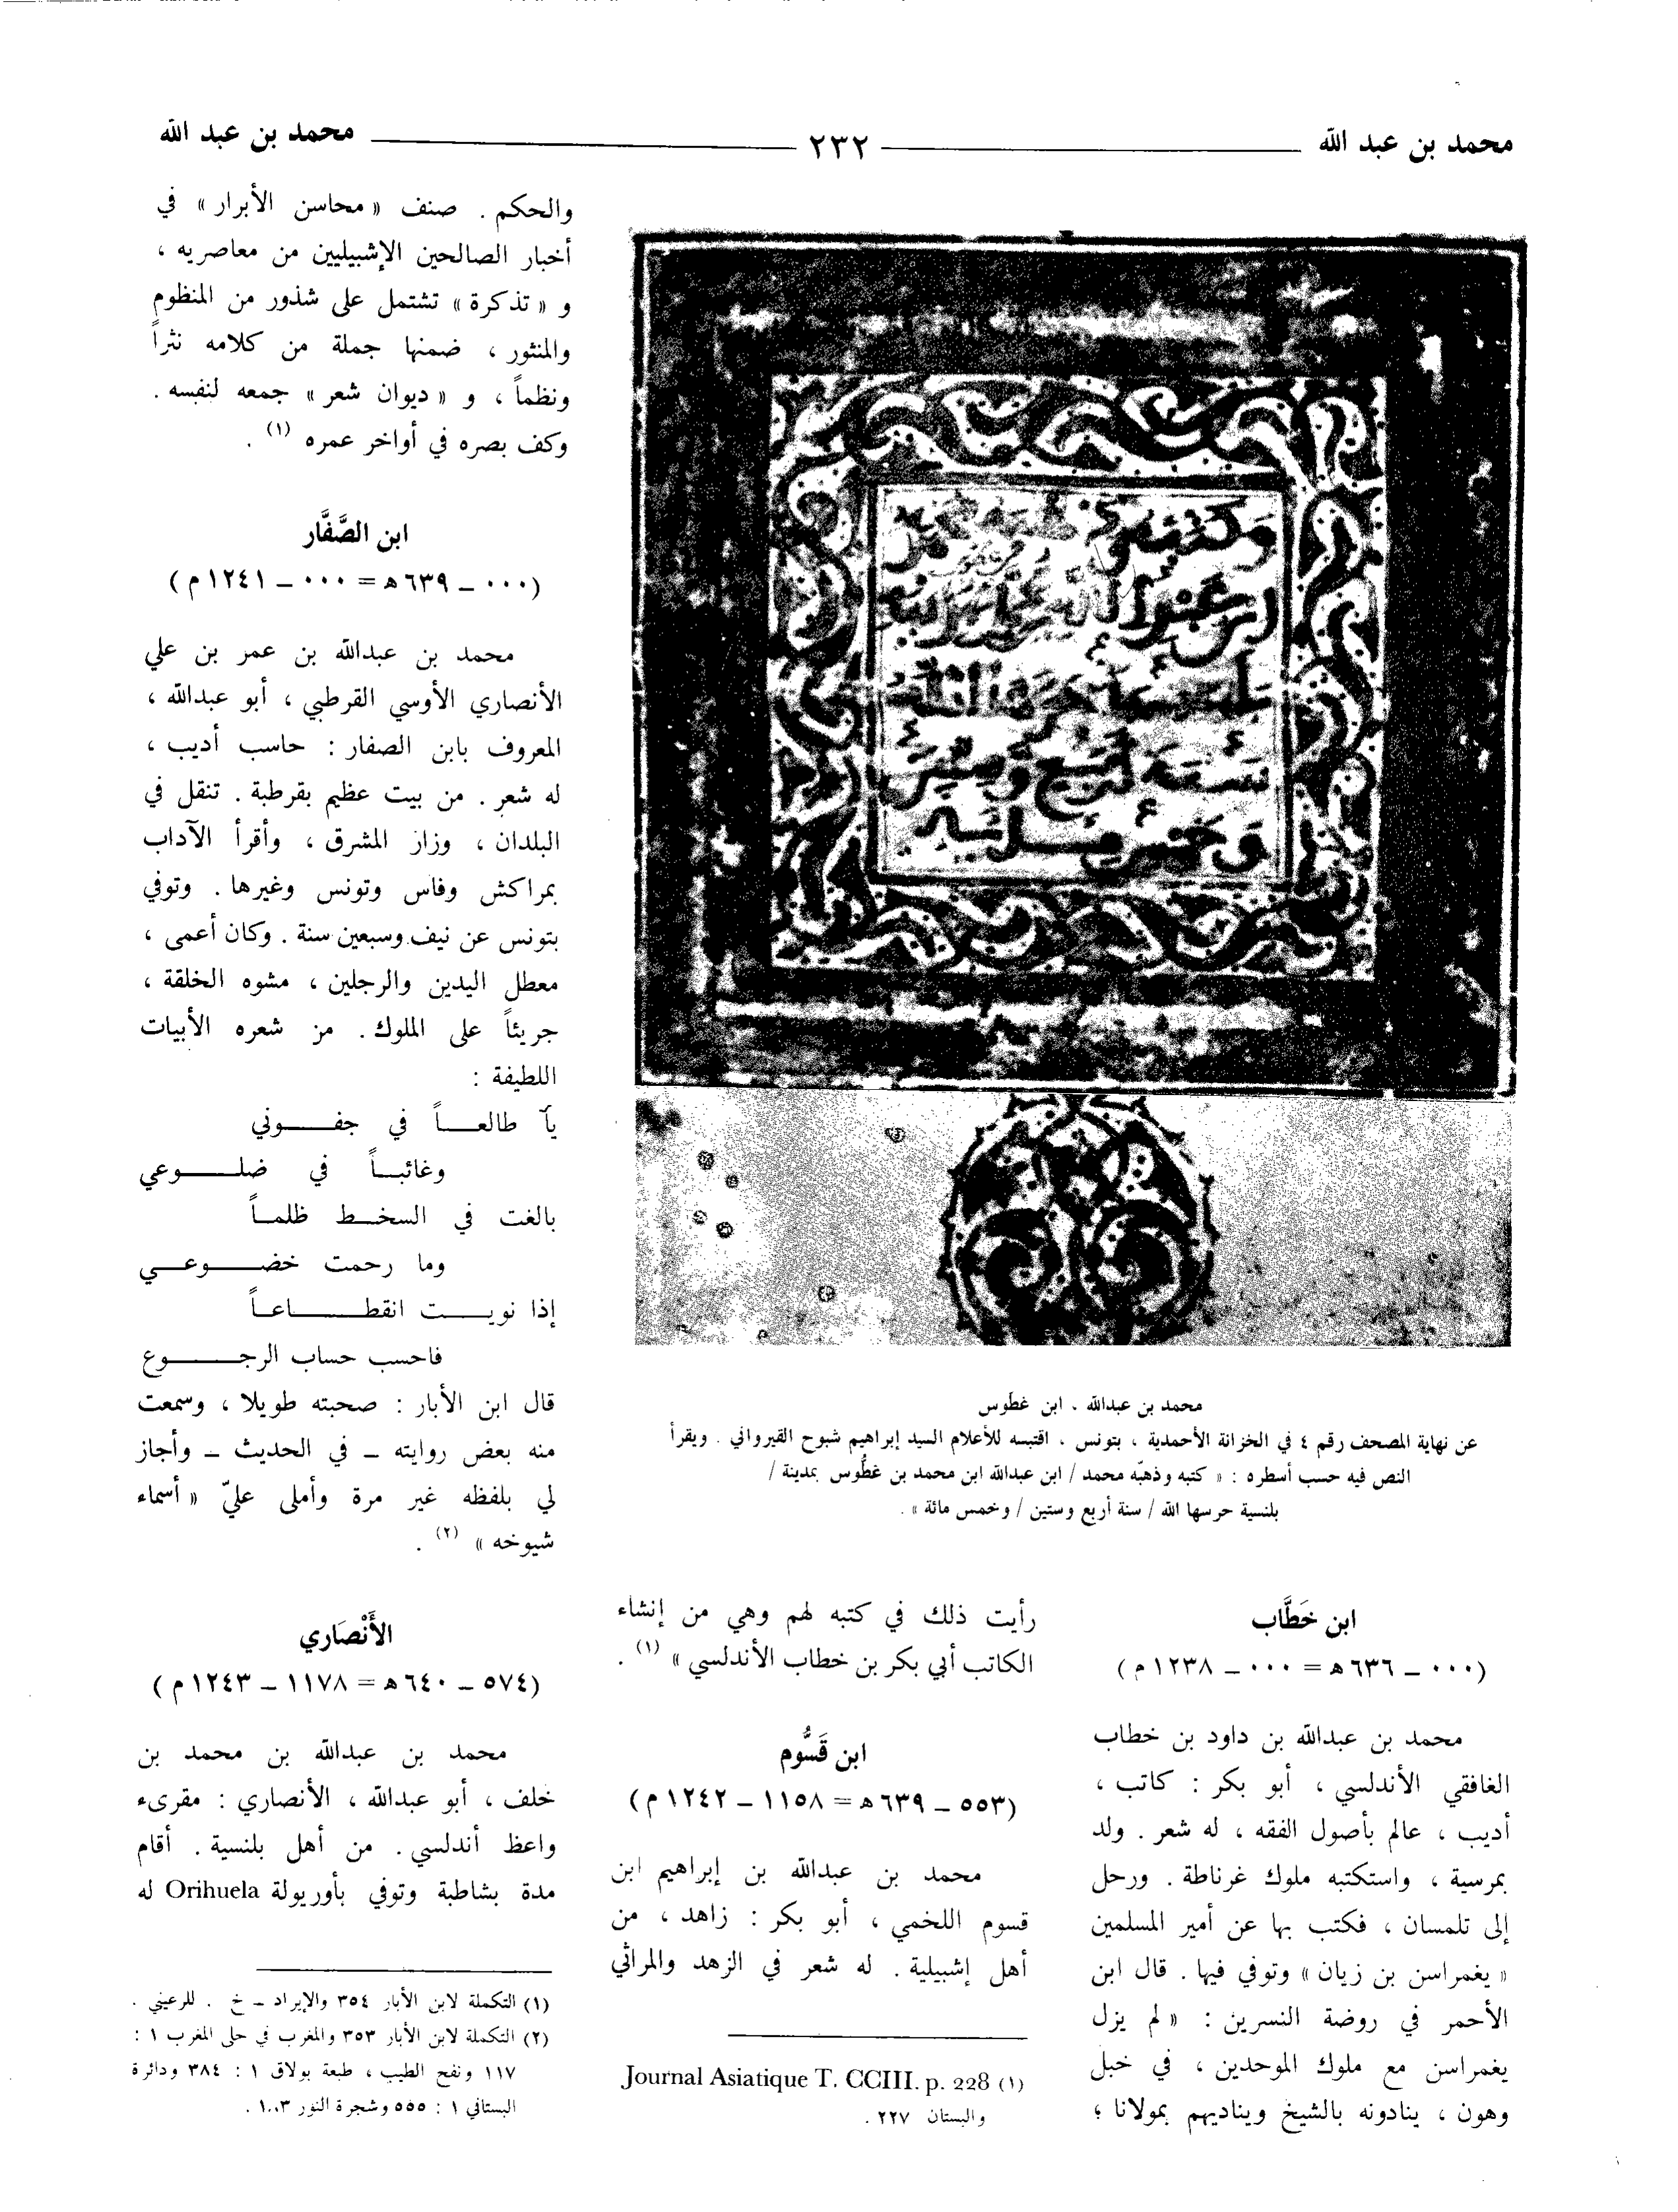 محمد بن عبد الله ٢٣٢ محمد بن عبد الله
محمد بن عبدالله ، ابن غطوس
عن نهاية المصحف رقم ٤ في الخزانة الأحمدية ، بتونس ، اقتبسه للأعلام السيد إبراهيم شبوح القيرواني . ويقرأ
النص فيه حسب أسطره : « كتبه وذهّبه محمد / ابن عبدالله ابن محمد بن غطُّوس بمدينة /
بلنسية حرسها الله / سنة أربع وستين / وخمس مائة » .
ابن خَطَّاب
(٠٠٠ ــ ٦٣٦ هـ = ٠٠٠ ــ ١٢٣٨ م )
محمد بن عبدالله بن داود بن خطاب
الغافقي الأندلسي ، أبو بكر : كاتب ،
أديب ، عالم بأصول الفقه ، له شعر . ولد
بمرسية ، واستكتبه ملوك غرناطة . ورحل
إلى تلمسان ، فكتب بها عن أمير المسلمين
« يغمراسن بن زيان » وتوفي فيها . قال ابن
الأحمر في روضة النسرين : « لم يزل
يغمراسن مع ملوك الموحدين ، في خبل
وهون ، ينادونه بالشيخ ويناديهم بمولانا ؛
رأيت ذلك في كتبه لهم وهي من إنشاء
الكاتب أبي بكر بن خطاب الأندلسي » (١) .
ابن قَسُّوم
(٥٥٣ ــ ٦٣٩ هـ = ١١٥٨ ــ ١٢٤٢ م )
محمد بن عبدالله بن إبراهيم ابن
قسوم اللخمي ، أبو بكر : زاهد ، من
أهل إشبيلية . له شعر في الزهد والمراثي
(١) Journal Asiatique T. CCIII. p. 228
والبستان ٢٢٧ .
والحكم . صنف « محاسن الأبرار » في
أخبار الصالحين الإشبيليين من معاصريه ،
و « تذكرة » تشتمل على شذور من المنظوم
والمنثور ، ضمنها جملة من كلامه نثراً
ونظماً ، و « ديوان شعر » جمعه لنفسه .
وكف بصره في أواخر عمره (١) .
ابن الصَّفَّار
(٠٠٠ ــ ٦٣٩ هـ = ٠٠٠ ــ ١٢٤١ م )
محمد بن عبدالله بن عمر بن علي
الأنصاري الأوسي القرطبي ، أبو عبدالله ،
المعروف بابن الصفار : حاسب أديب ،
له شعر . من بيت عظيم بقرطبة . تنقل في
البلدان ، وزار المشرق ، وأقرأ الآداب
بمراكش وفاس وتونس وغيرها . وتوفي
بتونس عن نيف وسبعين سنة . وكان أعمى ،
معطل اليدين والرجلين ، مشوه الخلقة ،
جريئاً على الملوك . من شعره الأبيات
اللطيفة :
يا طالعـــاً في جفـــوني
وغائبـــاً في ضلـــوعي
بالغت في السخـــط ظلمـــاً
وما رحمت خضـــوعـــي
إذا نويـــت انقطـــاعـــاً
فاحسب حساب الرجـــوع
قال ابن الأبار : صحبته طويلا ، وسمعت
منه بعض روايته ــ في الحديث ــ وأجاز
لي بلفظه غير مرة وأملى عليّ « أسماء
شيوخه » (٢) .
الأَنْصَاري
(٥٧٤ ــ ٦٤٠ هـ = ١١٧٨ ــ ١٢٤٣ م )
محمد بن عبدالله بن محمد بن
خلف ، أبو عبدالله ، الأنصاري : مقرىء
واعظ أندلسي . من أهل بلنسية . أقام
مدة بشاطبة وتوفي بأوريولة Orihuela له
(١) التكملة لابن الأبار ٣٥٤ والإيراد ــ خ . للرعيني .
(٢) التكملة لابن الأبار ٣٥٣ والمغرب في حلى المغرب ١ :
١١٧ ونفح الطيب ، طبعة بولاق ١ : ٣٨٤ ودائرة
البستاني ١ : ٥٥٥ وشجرة النور